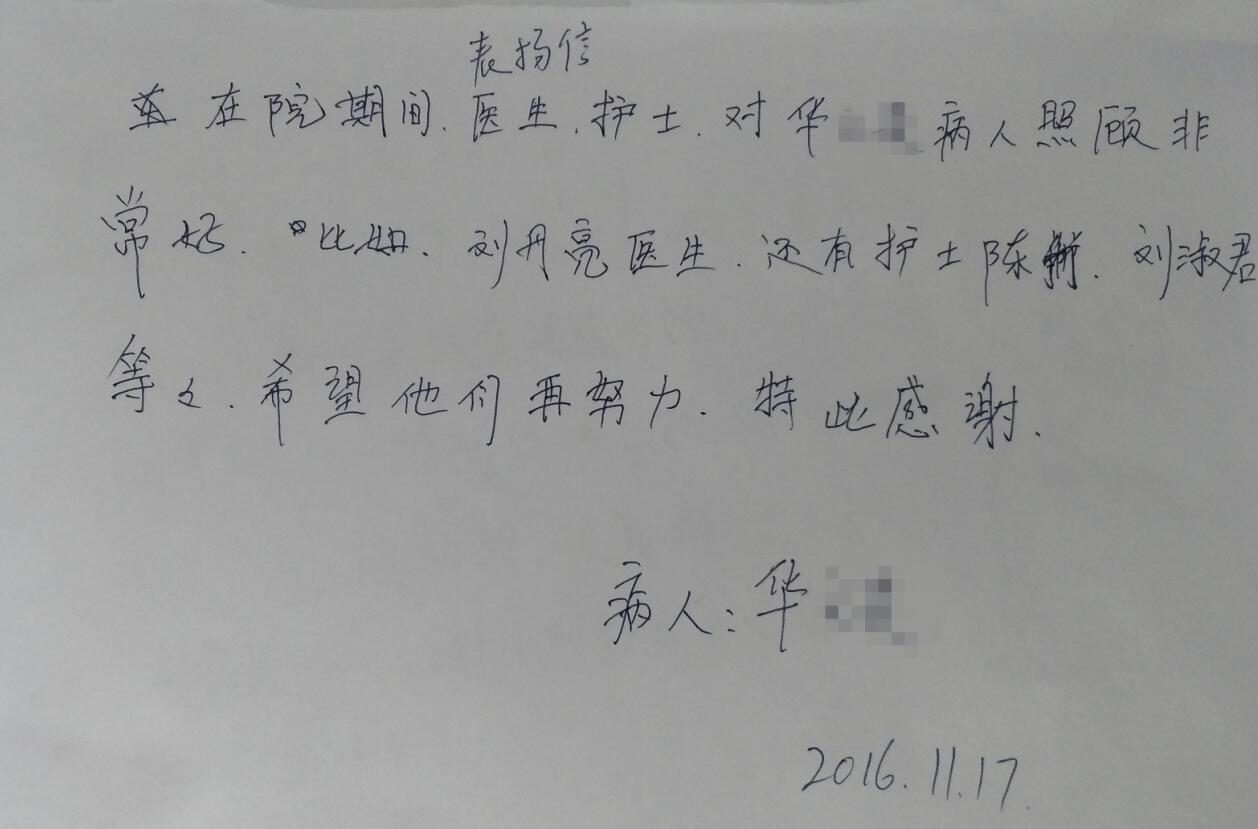 表扬信
在院期间.医生.护士.对华 病人照顾非
常好.比如.刘丹亮医生.还有护士陈 .刘淑君
等々.希望他们再努力.特此感谢.
病人:华
2016.11.17.